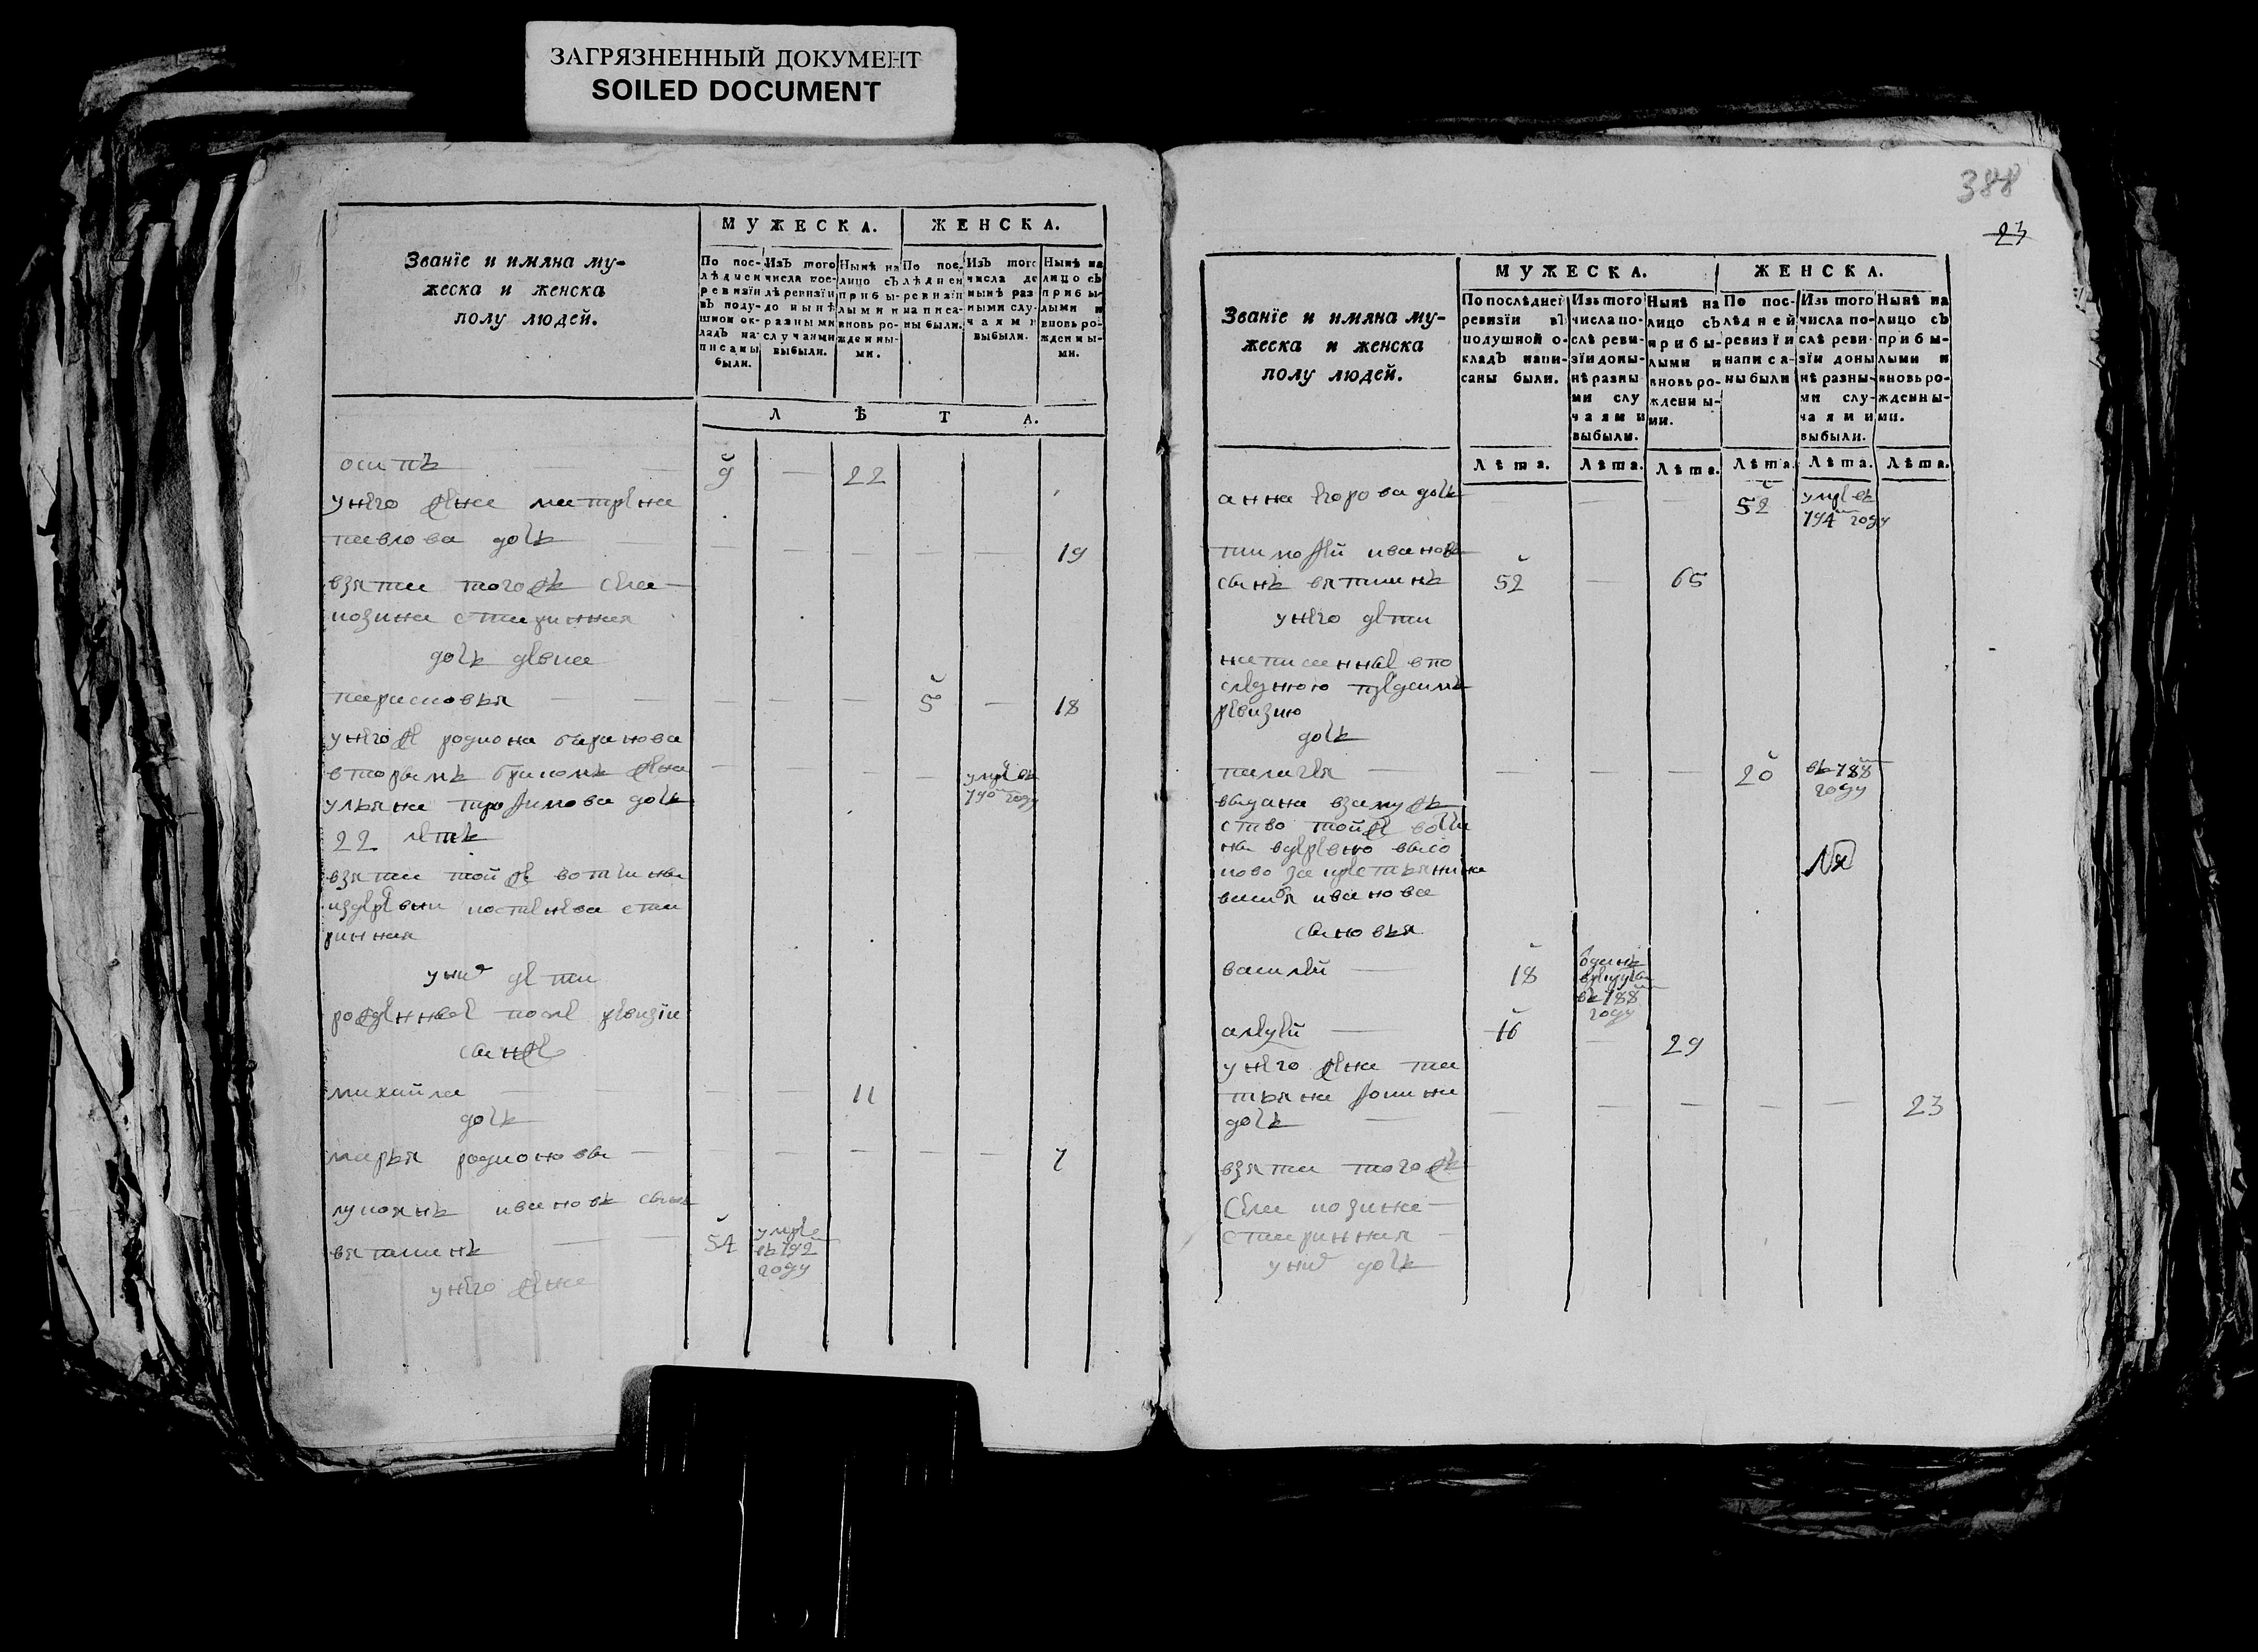 ЗАГРЯЗНЕННЫЙ ДОКУМЕНТ
SOILED DOCUMENT
Званїе и имяна му-
жеска и женска
полу людей.
МУЖЕСКА.
ЖЕНСКА.
По пос-
лѣдней
ревизїи
въ поду-
шной ок-
ладъ на-
писаны
были.
Изъ того
числа пос-
лѣ ревизїи
до нынѣ
разными
случаями
выбыли.
Нынѣ на
лицо съ
прибы-
лыми и
вновь ро-
жденны-
ми.
По пос-
лѣдней
ревизїи
написа-
ны были.
Изъ того
числа до
нынѣ раз
ными слу-
чаями
выбыли.
Нынѣ на
лицо съ
прибы-
лыми и
вновь ро-
жденны-
ми.
ЛѢТА.
осипъ — — 9 — 22
унего жена матрена
павлова дочь — — — — — — — 19
взята тогожъ села —
старинная
дочь девка
парасковья — — — — — 5 — 18
унегоже родиона
вторымъ бракомъ жена — — — — умре въ
790м году
ульяна трофимова дочь
22 летъ
взята тойже вотчины
издеревни ста
ринная
унихъ дети
рожденные после ревизїи
сынъ
михайла — — — — 11
дочь
марья родионова — — — — — — 7
лукоянъ ивановъ сынъ
вятшинъ — — 54 умре
въ 792
году
унего жена
388
23
Званїе и имяна му-
жеска и женска
полу людей.
МУЖЕСКА.
ЖЕНСКА.
По послѣдней
ревизїи въ
подушной о-
кладъ напи-
саны были.
Изъ того
числа по-
слѣ реви-
зїи доны-
нѣ разны-
ми слу
чаями
выбыли.
Нынѣ на
лицо съ
прибы-
лыми и
вновь ро-
жденны-
ми.
По пос-
лѣдней
ревизїи
написа-
ны были
Изъ того
числа по-
слѣ реви-
зїи доны
нѣ разны-
ми слу-
чаями
выбыли.
Нынѣ на
лицо съ
прибы-
лыми и
вновь ро-
жденны-
ми.
Лѣта. Лѣта. Лѣта. Лѣта. Лѣта. Лѣта.
анна егорова дочь — — — 52 умре въ
794м году
тимофей ивановъ
сынъ вятшинъ 52 — 65
унего дети
написанные впо
следнюю предсимъ
ревизию
дочь
палагея — — — — 20 въ 788м
году
выдана взамуж
ство тойже вотчи
ны вдеревню высо
ково за крестьянина
ивановa
сыновья
василей — 18 въ 788м
году
алексей — 16 — 29
унего жена та
тьяна фомина
дочь — — — — — — 23
взята тогожъ
села —
старинная —
унихъ дочь